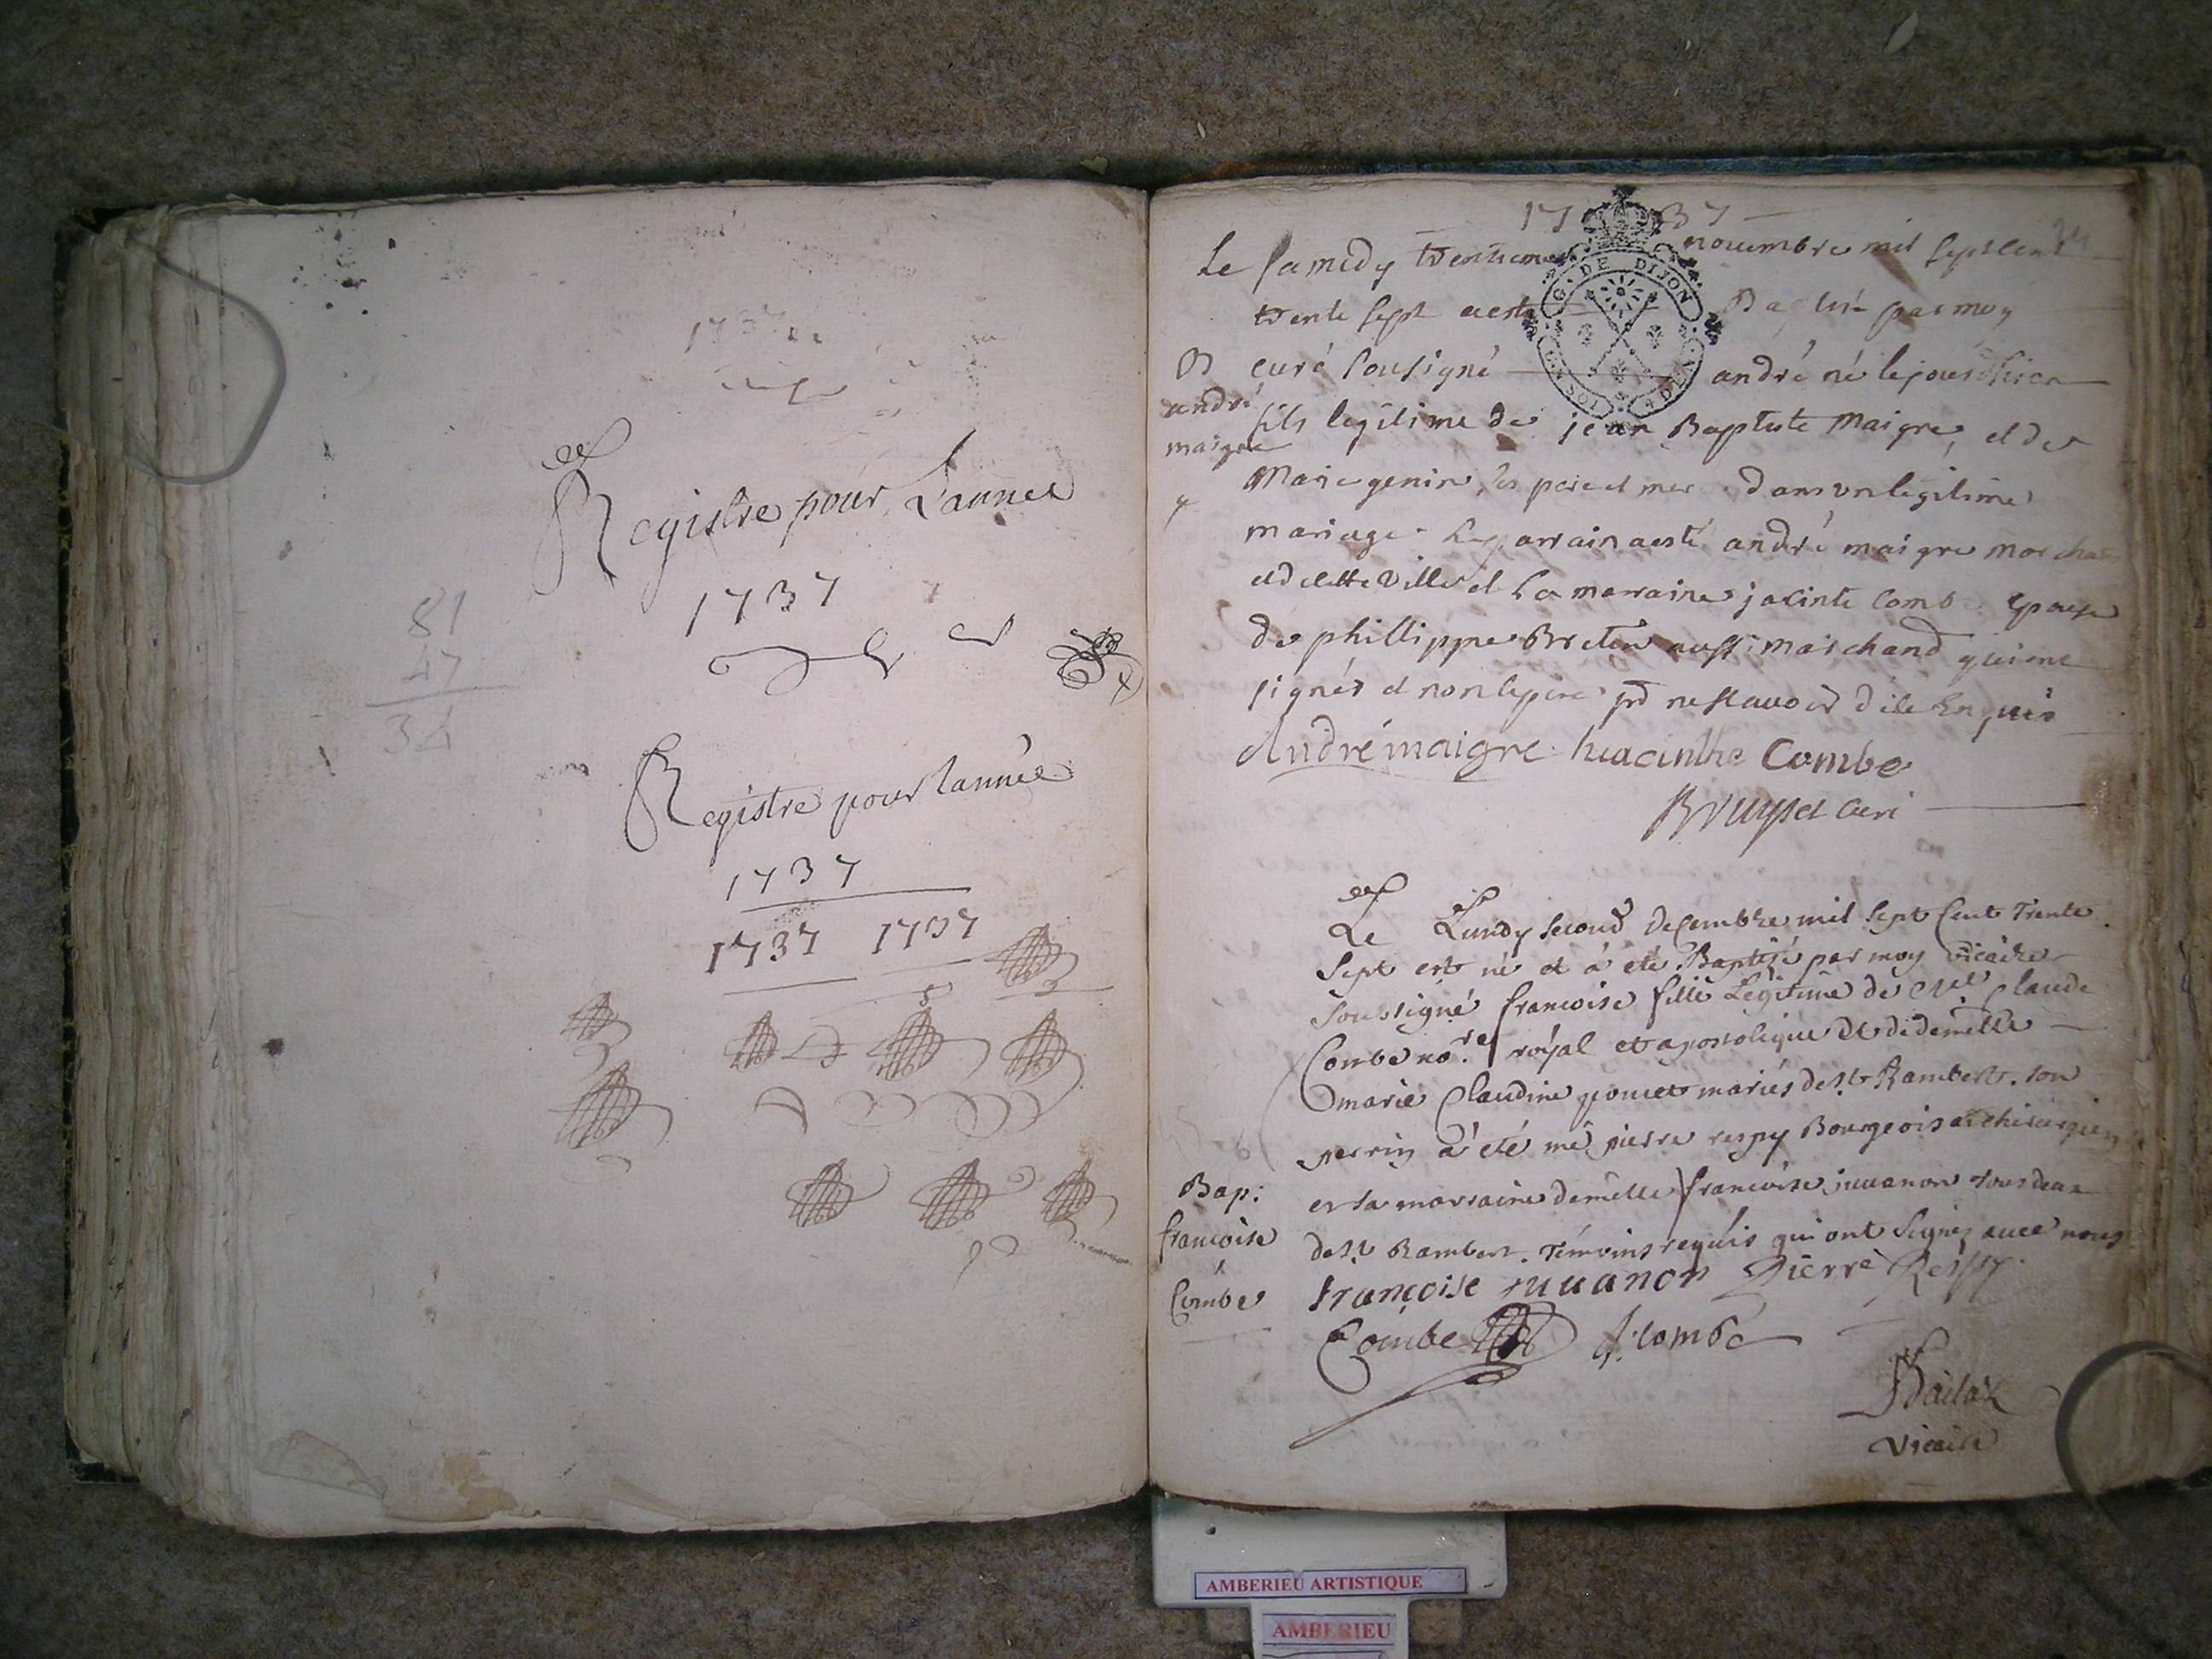 1737
Registre pour L'annee
1737
81
47
34
Registre pour L'année
1737
1737 1737
1737
Le samedy trentieme novembre mil sept cent
trente sept a esté Baptisé par moy
curé sousigné andré né le jour d'hier
fils legitime de jean Baptiste Maigre, et de
Marie genin ses pere et mere dans un legitime
mariage Le parrain a esté andré maigre marchand
de cette ville et La marraine jacinte Combe Epouse
de phillippe Breton aussi marchand qui ont
signés et non le pere pnt ne scavoir de ce Enquis
André maigre hiacinthe Combe
Bruyset Curé
B
andré
maigre
Le Lundy second decembre mil sept Cent Trente
Sept est né et à été Baptisé par moy vicaire
Soussigné francoise fille Legitime de Me Claude
Combe nore royal et apostolique et de demelle
marie Claudine poncet mariés de St Rambert. son
perrin à été me pierre respy Bourgeois et chirurgien
et sa marraine demelle francoise juuanon tous deux
de St Rambert. Témoins requis qui ont signez avec nous
Bap:
francoise
Combe
françoise juuanon Pierre Respy
Combe f. combe
vicaire
G. DE DIJON
AMBERIEU ARTISTIQUE
AMBERIEU